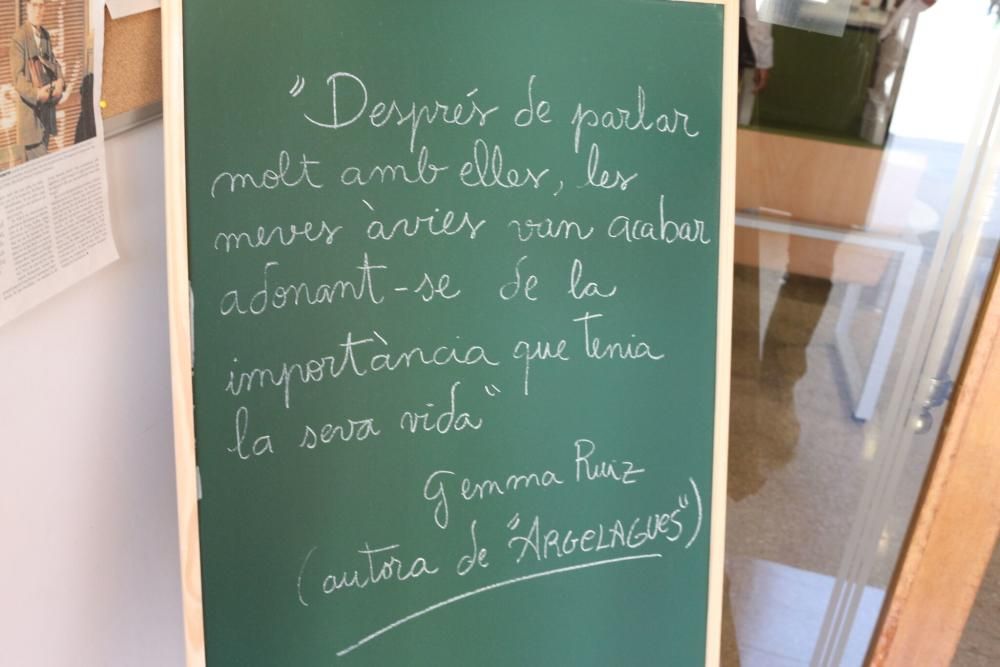 "Després de parlar
molt amb elles, les
meves àvies van acabar
adonant-se de la
importància que tenia
la seva vida"
Gemma Ruiz
(autora de "ARGELAGUES")